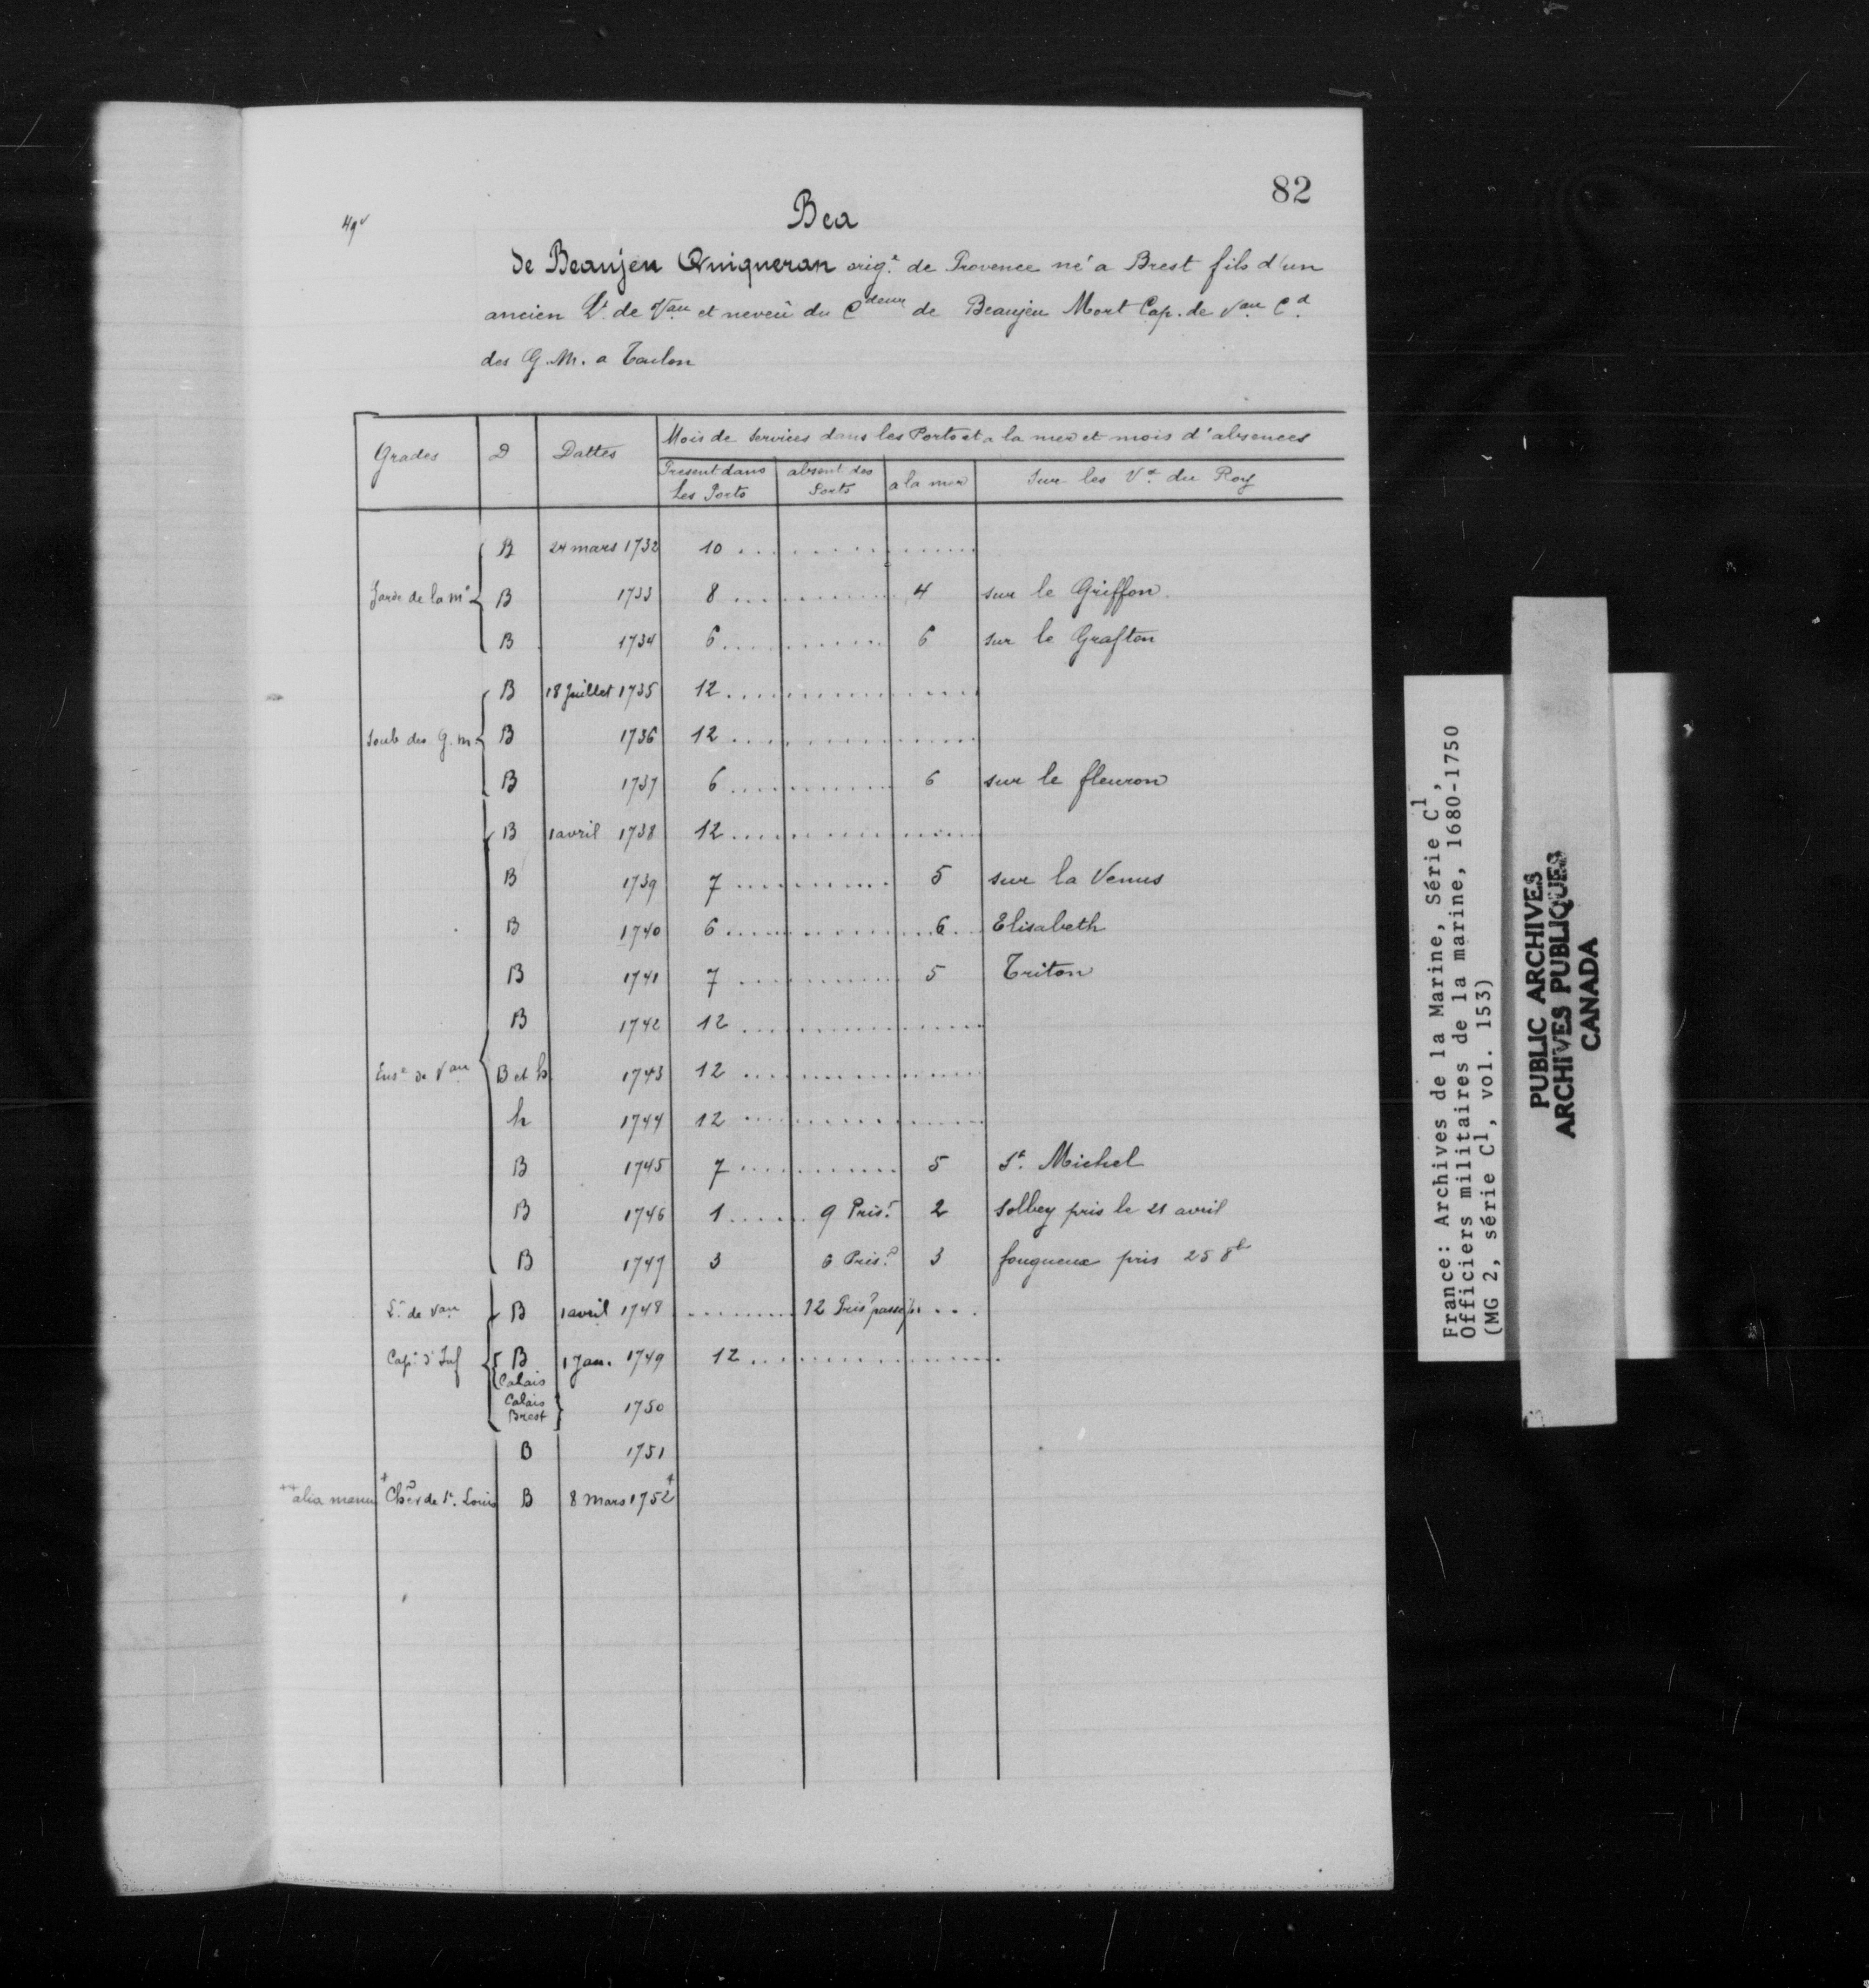 82
49v
Bea
de Beaujeu Quiqueran orig.e de Provence né a Brest fils d'un
ancien Lt. de Vau et neveû du Cdeur de Beaujeu Mort Cap. de Vau Cd.
des G. M. a Toulon
Grades D Dattes Mois de Services dans les Ports et a la mer et mois d'absences
Present dans les Ports absent des Ports a la mer Sur les Vx. du Roy
B 24 mars 1732 10
Garde de la me B 1733 8 4 sur le Griffon
B 1734 6 6 sur le Grafton
B 18 Juillet 1735 12
Soub des G. m B 1736 12
B 1737 6 6 sur le fleuron
B 1 avril 1738 12
B 1739 7 5 sur la Venus
B 1740 6 6 Elisabeth
B 1741 7 5 Triton
B 1742 12
Ense de Vau B et h 1743 12
h 1744 12
B 1745 7 5 St. Michel
B 1746 1 9 Pris.r 2 Solbey pris le 21 avril
B 1747 3 6 Pris.r 3 fougueux pris 25 8b
Lt. de Vau B 1 avril 1748 12 Pris.r
Cap.e d'Inf B 1 Jan. 1749 12
Calais
Calais
Brest 1750
B 1751
++alia manu +Cher de St. Louis B 8 Mars 1752+
France: Archives de la Marine, Série C1,
Officiers militaires de la marine, 1680-1750
(MG 2, série C1, vol. 153)
PUBLIC ARCHIVES
ARCHIVES PUBLIQUES
CANADA